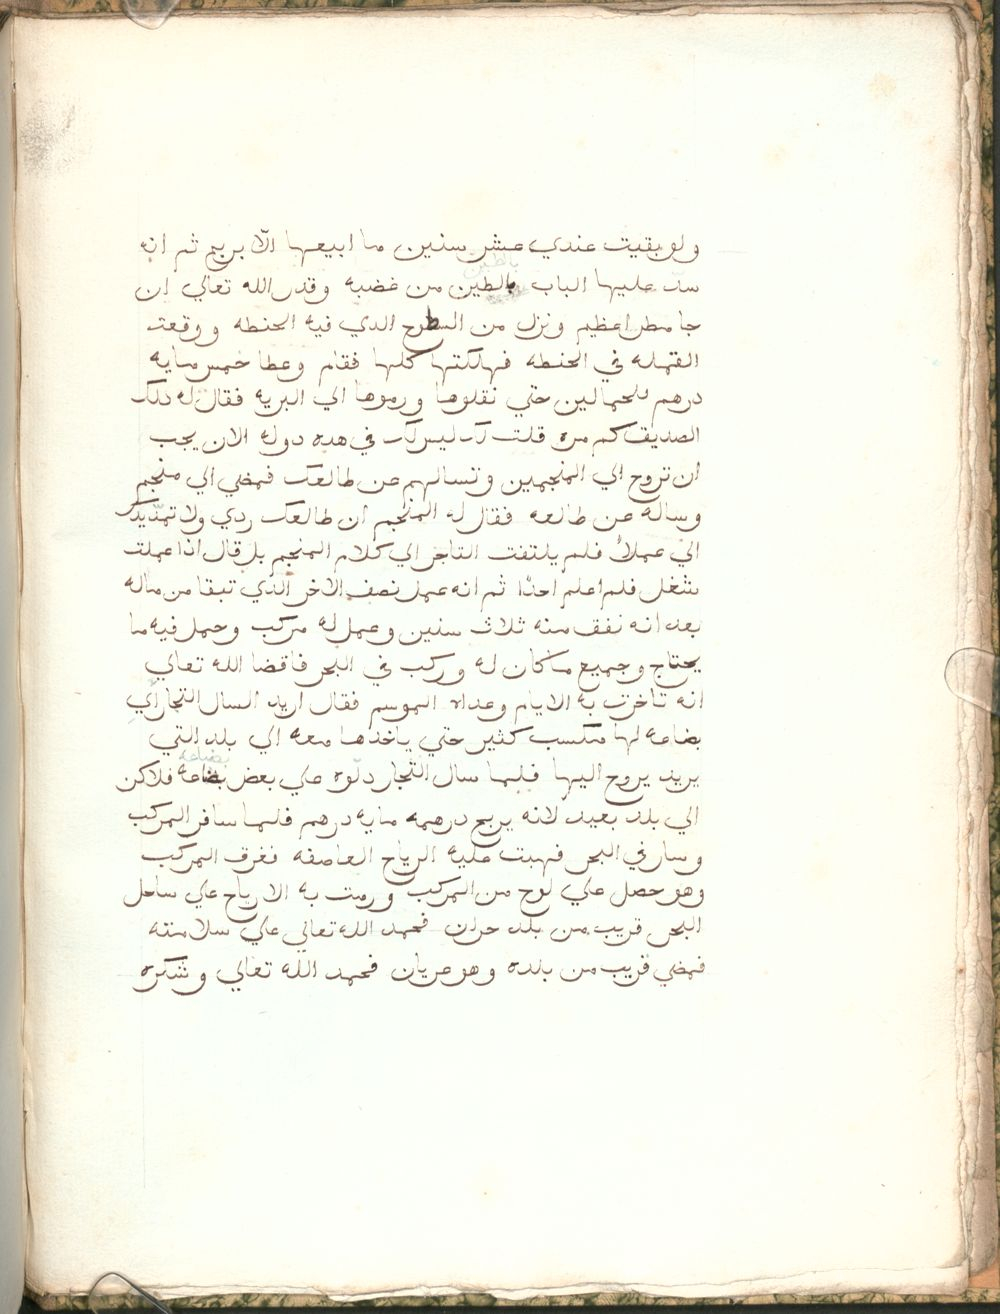 ولو بقيت عندي عشر سنين ما ابيعها الّا بربح ثم انه
سدّ عليها الباب بالطين من غضبه وقدر الله تعالي ان
جا مطر اعظيم ونزل من السطوح الدي فيه الحنطه ووقعت
القمله في الحنطه فهلكتها كلها فقام وعطا خمس مايه
درهم للحمالين حتي نقلوها ورموها الي البريه فقال له دلك
الصديق كم مره قلت لك ليس لك في هده دوله الان يجب
ان تروح الي المنجمين وتسالهم عن طالعك فمضي الي منجم
وساله عن طالعه فقال له المنجم ان طالعك ردي ولا تمدّ يدك
الي عملاً فلم يلتفت التاجر الي كلام المنجم بل قال اذا عملت
شغل فلم اعلم احدًا ثم انه عمل نصف الاخر الذي تبقا من ماله
بعد انه نفق منه ثلاث سنين وعمل له مركب وحمل فيه ما
يحتاج وجميع ما كان له وركب في البحر فاقضا الله تعالي
انه تاخرت به الايام وعداه الموسم فقال اريد اسال التجار اي
بضاعه لها مكسب كثير حتي ياخدها معه الي بلد التي
يريد يروح اليها فلما سال التجار دلّوه علي بعض بضاعه فلاكن
الي بلد بعيد لانه يربح درهمه مايه درهم فلما سافر المركب
وسار في البحر فهبت عليه الرياح العاصفه فغرق المركب
وهو حصل علي لوح من المركب ورمت به الارياح علي ساحل
البحر قريب من بلد حران فحمد الله تعالي علي سلامته
فمضي قريب من بلده وهو عريان فحمد الله تعالي وشكره